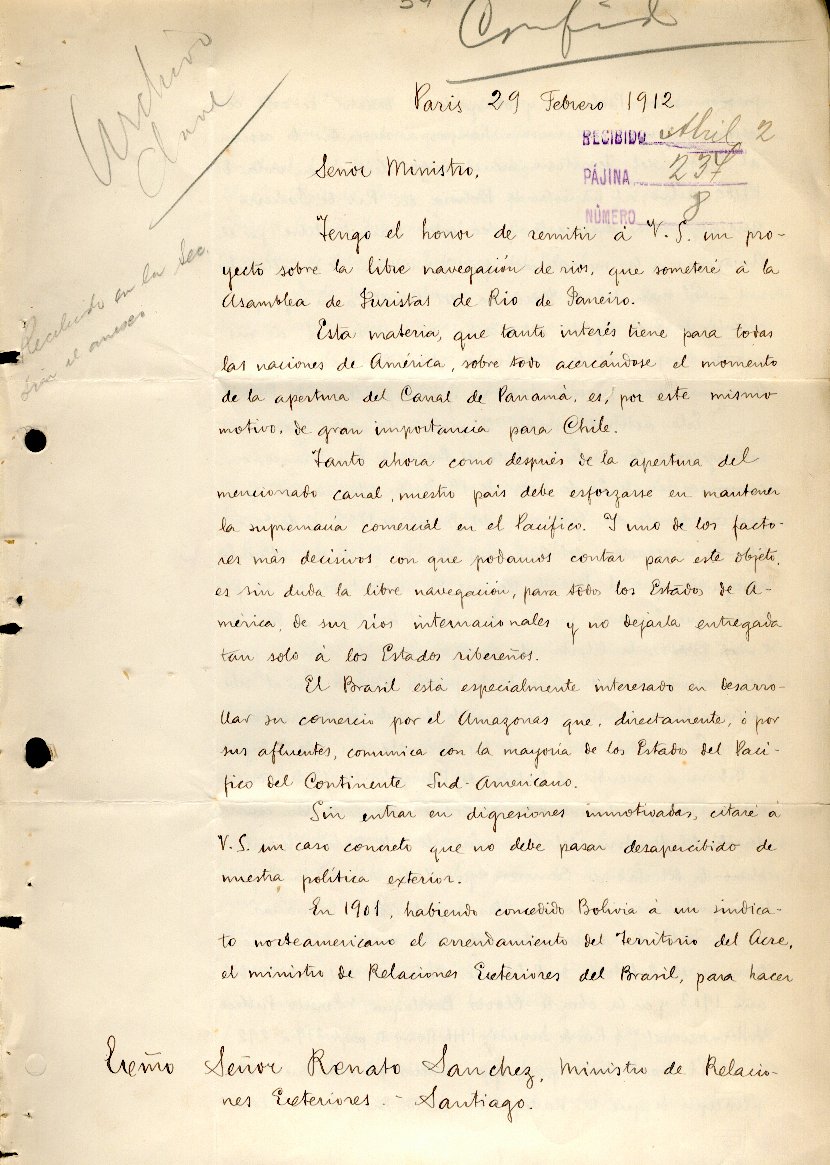 Confid
Archivo
Clave
Paris 29 Febrero 1912
RECIBIDO Abril 2
PÁJINA 237
NÚMERO 8
Señor Ministro,
Recibido en la Sec.
sin el anexo
Tengo el honor de remitir á V. S. un pro-
yecto sobre la libre navegación de rios, que someteré á la
Asamblea de Juristas de Rio de Janeiro.
Esta materia, que tanto interés tiene para todas
las naciones de América, sobre todo acercándose el momento
de la apertura del Canal de Panamá, es, por este mismo
motivo, de gran importancia para Chile.
Tanto ahora como después de la apertura del
mencionado canal, nuestro país debe esforzarse en mantener
la supremacía comercial en el Pacífico. I uno de los facto-
res más decisivos con que podamos contar para este objeto,
es sin duda la libre navegación, para todos los Estados de A-
mérica, de sus ríos internacionales y no dejarla entregada
tan solo á los Estados ribereños.
El Brasil está especialmente interesado en desarro-
llar su comercio por el Amazonas que, directamente, ó por
sus afluentes, comunica con la mayoría de los Estados del Pací-
fico del Continente Sud-Americano.
Sin entrar en digresiones inmotivadas, citaré á
V. S. un caso concreto que no debe pasar desapercibido de
nuestra política exterior.
En 1901, habiendo concedido Bolivia á un sindica-
to norteamericano el arrendamiento del Territorio del Acre,
el ministro de Relaciones Exteriores del Brasil, para hacer
Exmo Señor Renato Sanchez, Ministro de Relacio-
nes Exteriores.- Santiago.